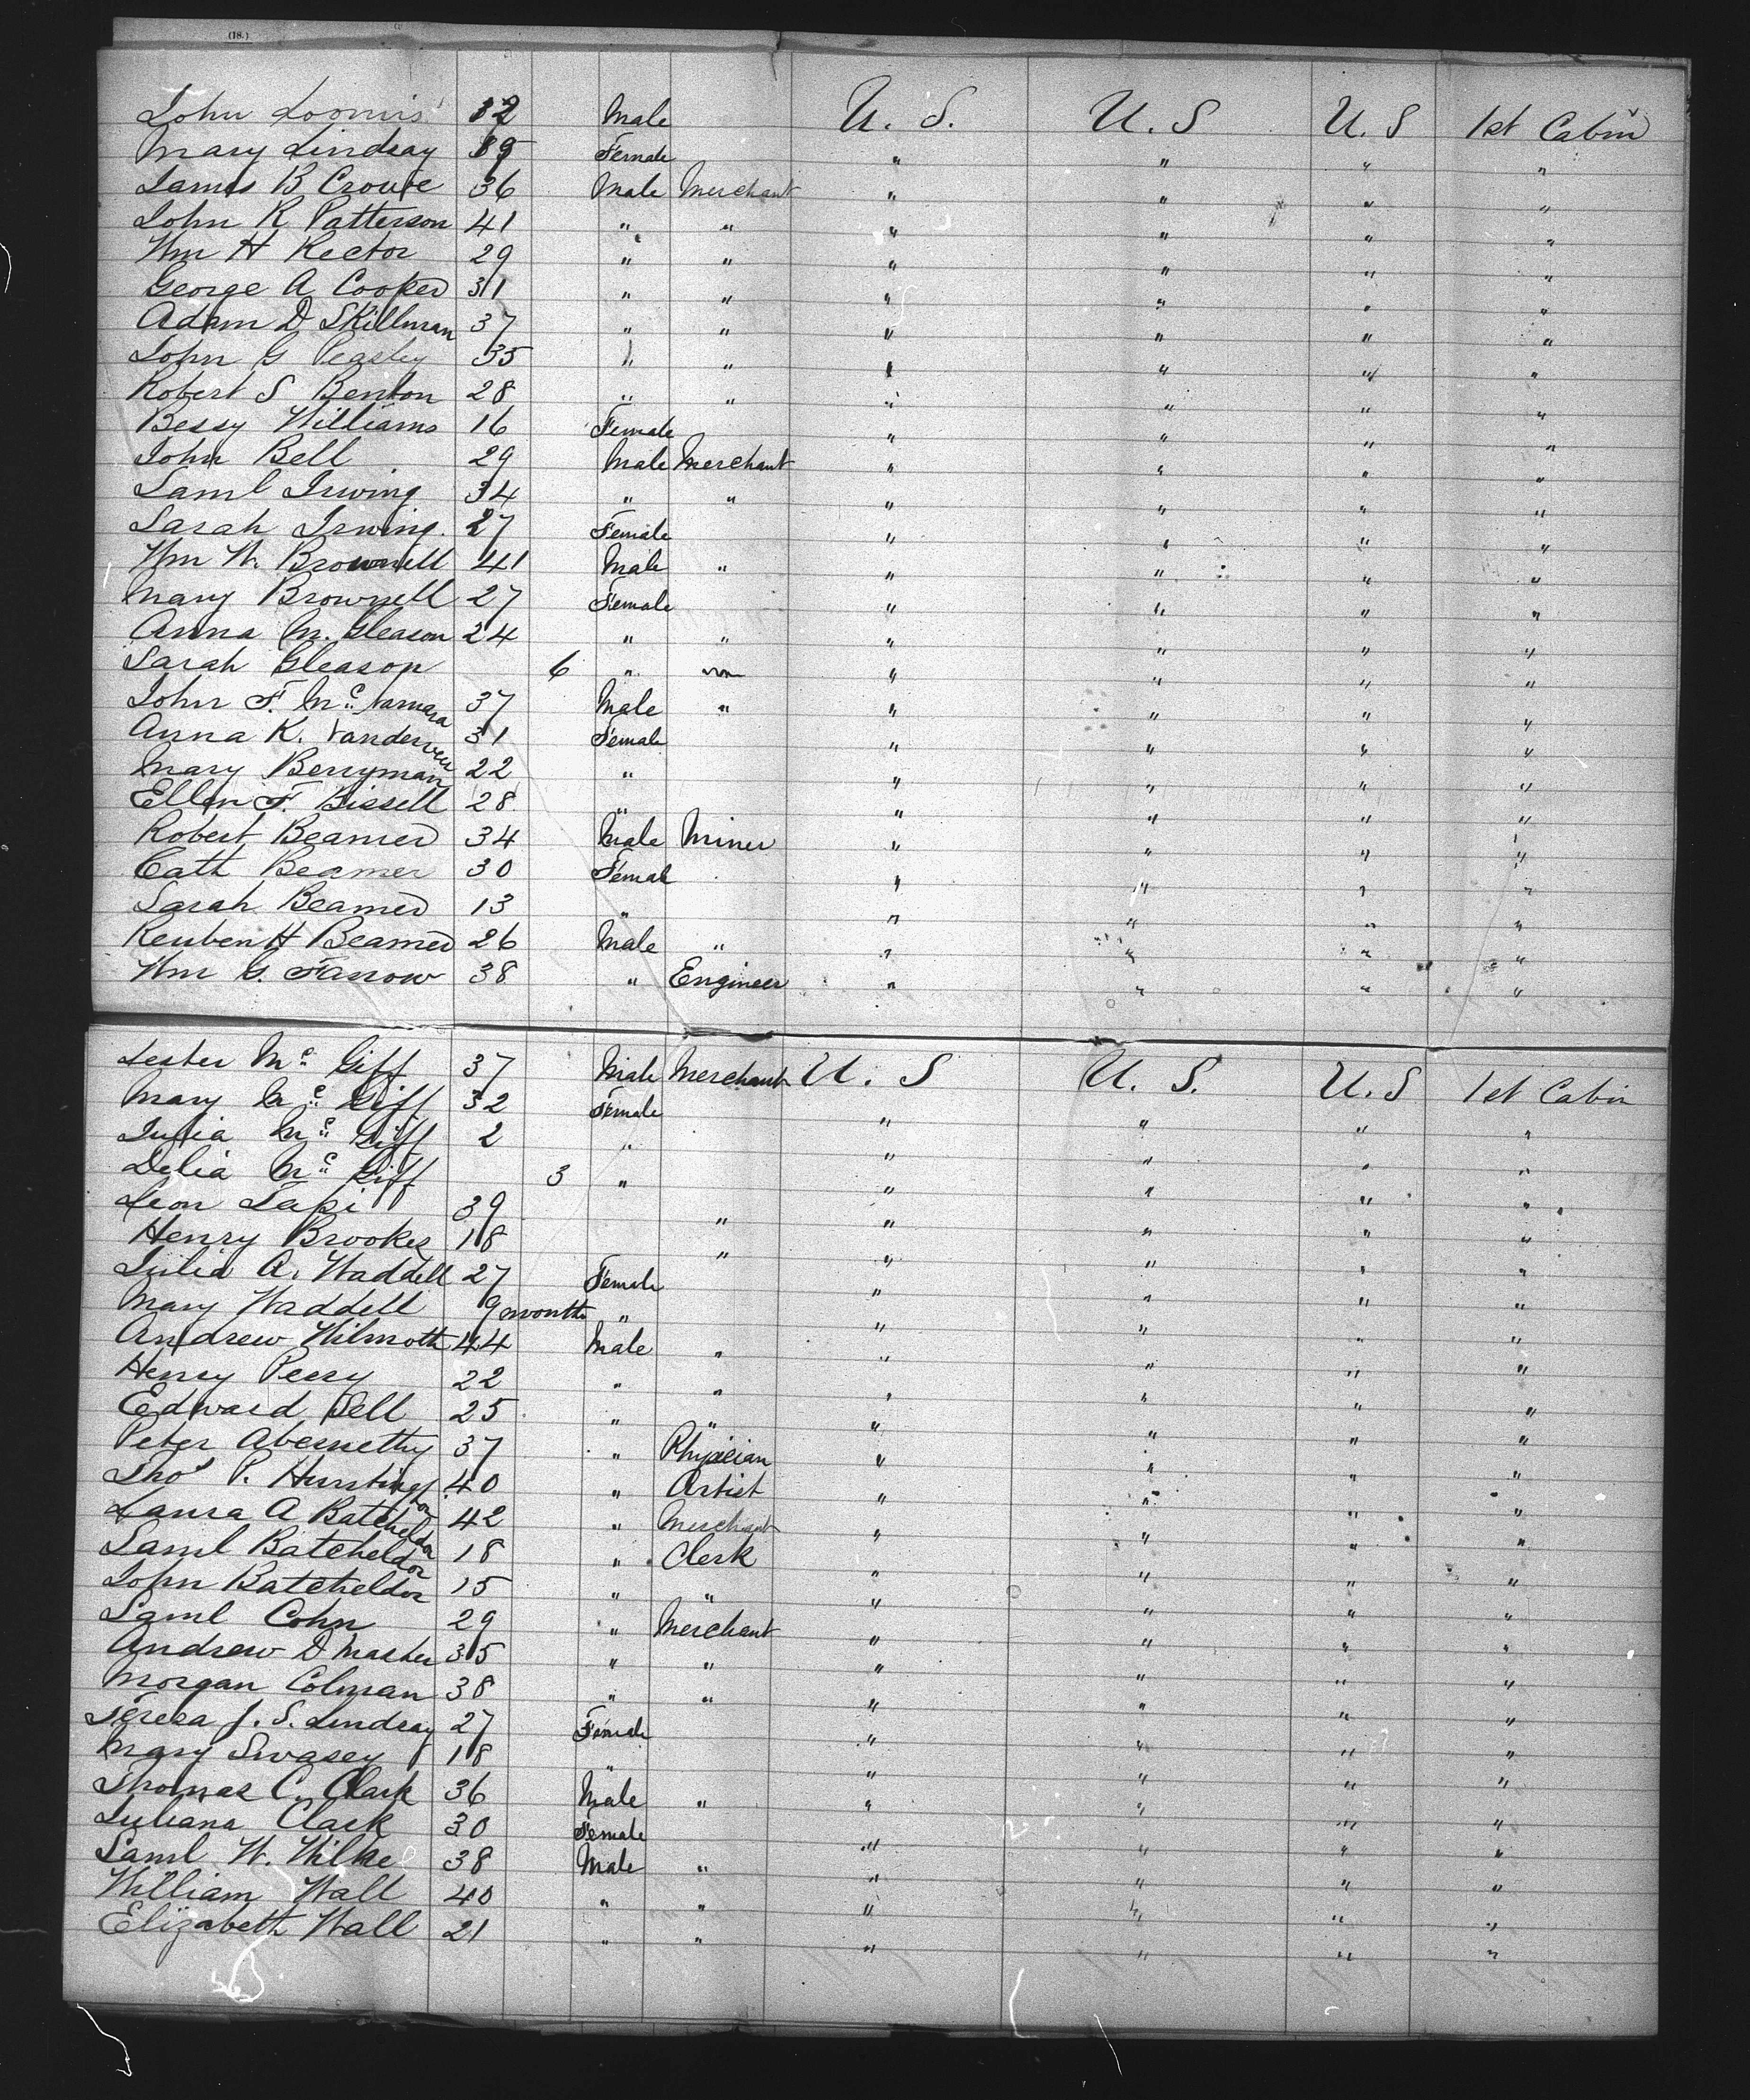 (18.)
John Loomis 32 Male U. S. U. S U. S 1st Cabin
Mary Lindsay 19 Female " " " "
James B Crouse 36 Male Merchant " " " "
John R Patterson 41 " " " " " "
Wm H Rector 29 " " " " " "
George A Cooper 31 " " " " " "
Adam D Skillman 37 " " " " " "
John G Peasley 35 " " " " " "
Robert S Benton 28 " " " " " "
Bessy Williams 16 Female " " " "
John Bell 29 Male Merchant " " " "
Saml Irwing 34 " " " " " "
Sarah Irwing. 27 Female " " " "
Wm W. Brownell 41 Male " " " " "
Mary Brownell 27 Female " " " "
Anna M. Gleason 24 " " " " " "
Sarah Gleason 6 " " " " "
John F. Mc Namara 37 Male " " " " "
Anna K. Vanderveer 31 Female " " " "
Mary Berryman 22 " " " " "
Ellen F. Bissell 28 " " " " "
Robert Beamer 34 Male Miner " " " "
Cath Beamer 30 Female " " " "
Sarah Beamer 13 " " " " "
Reuben H Beamer 26 Male " " " " "
Wm G. Farrow 38 " Engineer " " " "
Lester Mc Giff 37 Male Merchant U. S U. S. U. S 1st Cabin
Mary Mc Giff 32 Female " " " "
Julia Mc Giff 2 " " " " "
Delia Mc Giff 3 " " " " "
Leon Tapi 39 " " " " "
Henry Brookes 18 " " " " "
Julia A. Waddell 27 Female " " " "
Mary Waddell 9 months " " " " "
Andrew Wilmoth 44 Male " " " " "
Henry Perry 22 " " " " " "
Edward Sell 25 " " " " " "
Peter Abernethy 37 " Physician " " " "
Thos P. 40 " Artist " " " "
Laura A Batcheldor 42 " Merchant " " " "
Saml Batcheldor 18 " Clerk " " " "
John Batcheldor 15 " " " " " "
Saml Cohn 29 " Merchant " " " "
Andrew D Masher 35 " " " " " "
Morgan Colman 38 " " " " " "
Teresa J. S. Lindsay 27 Female " " " "
Mary Swasey 18 " " " " "
Thomas C. Clark 36 Male " " " " "
Juliana Clark 30 Female " " " "
Saml W. Wilke 38 Male " " " " "
William Wall 40 " " " " " "
Elizabeth Wall 21 " " " " " "